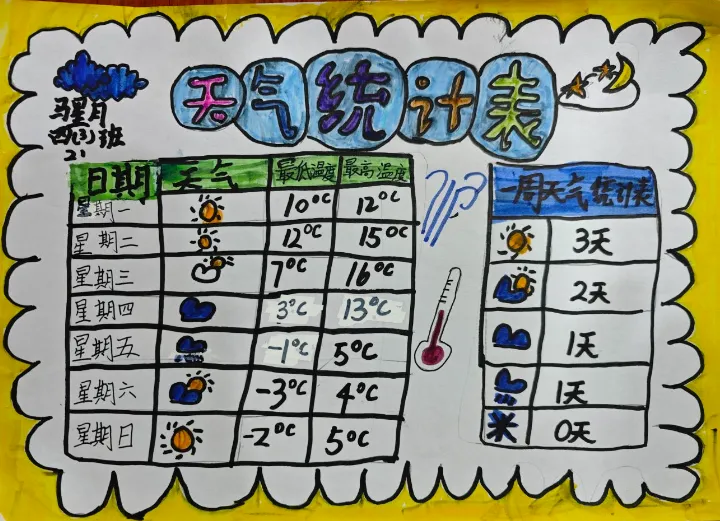 天气统计表
马星月
四(3)班
21
日期 天气 最低温度 最高温度
星期一 10°C 12°C
星期二 12°C 15°C
星期三 7°C 16°C
星期四 3°C 13°C
星期五 -1°C 5°C
星期六 -3°C 4°C
星期日 -2°C 5°C
一周天气统计表
3天
2天
1天
1天
0天